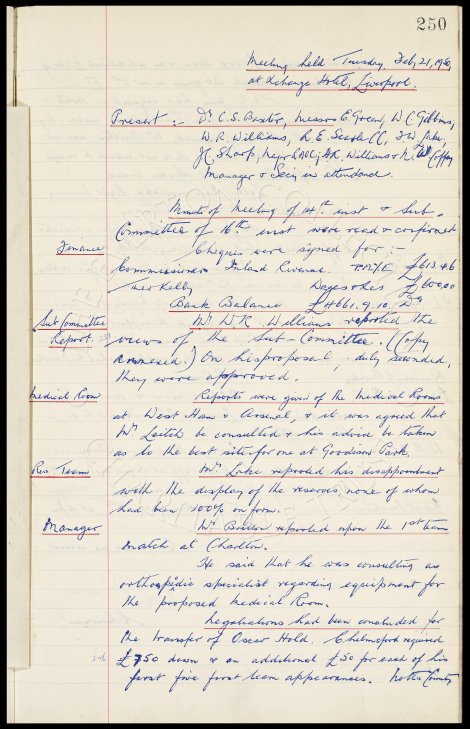 250
Meeting held Tuesday, Feb 21, 1950,
at Exchange Hotel, Liverpool.
Present :- Dr C. S. Baxter, Messrs E Green, W C Gibbins,
W. R. Williams, R. E. Searle CC, F W Lake,
J C Sharp, Major HR Williams & N W Coffey
Manager & Secy in attendance.
Minutes of Meeting of 14th inst & Sub-
Committee of 16th inst were read & confirmed
Finance
Cheques were signed for :-
Commissioners Inland Revenue. P.A.Y.E £613.4.6
Wages &
Bank Balance £4661.9.10. Dr
Sub Committee
Report.
Mr W R Williams reported the
views of the Sub-Committee. (Copy
annexed.) On his proposal, duly seconded,
they were approved.
Medical Room
Reports were given of the Medical Rooms
at West Ham & Arsenal, & it was agreed that
Mr Leitch be consulted & his advice be taken
as to the best site for one at Goodison Park.
Res Team
Mr Lake reported his disappointment
with the display of the reserves, none of whom
had been 100% on form.
Manager
Mr Britton reported upon the 1st team
match at Charlton.
He said that he was consulting an
orthopædic specialist regarding equipment for
the proposed Medical Room.
Negotiations had been concluded for
the transfer of Oscar Hold. Chelmsford required
£750 down & an additional £50 for each of his
246
first five first team appearances. Notts County